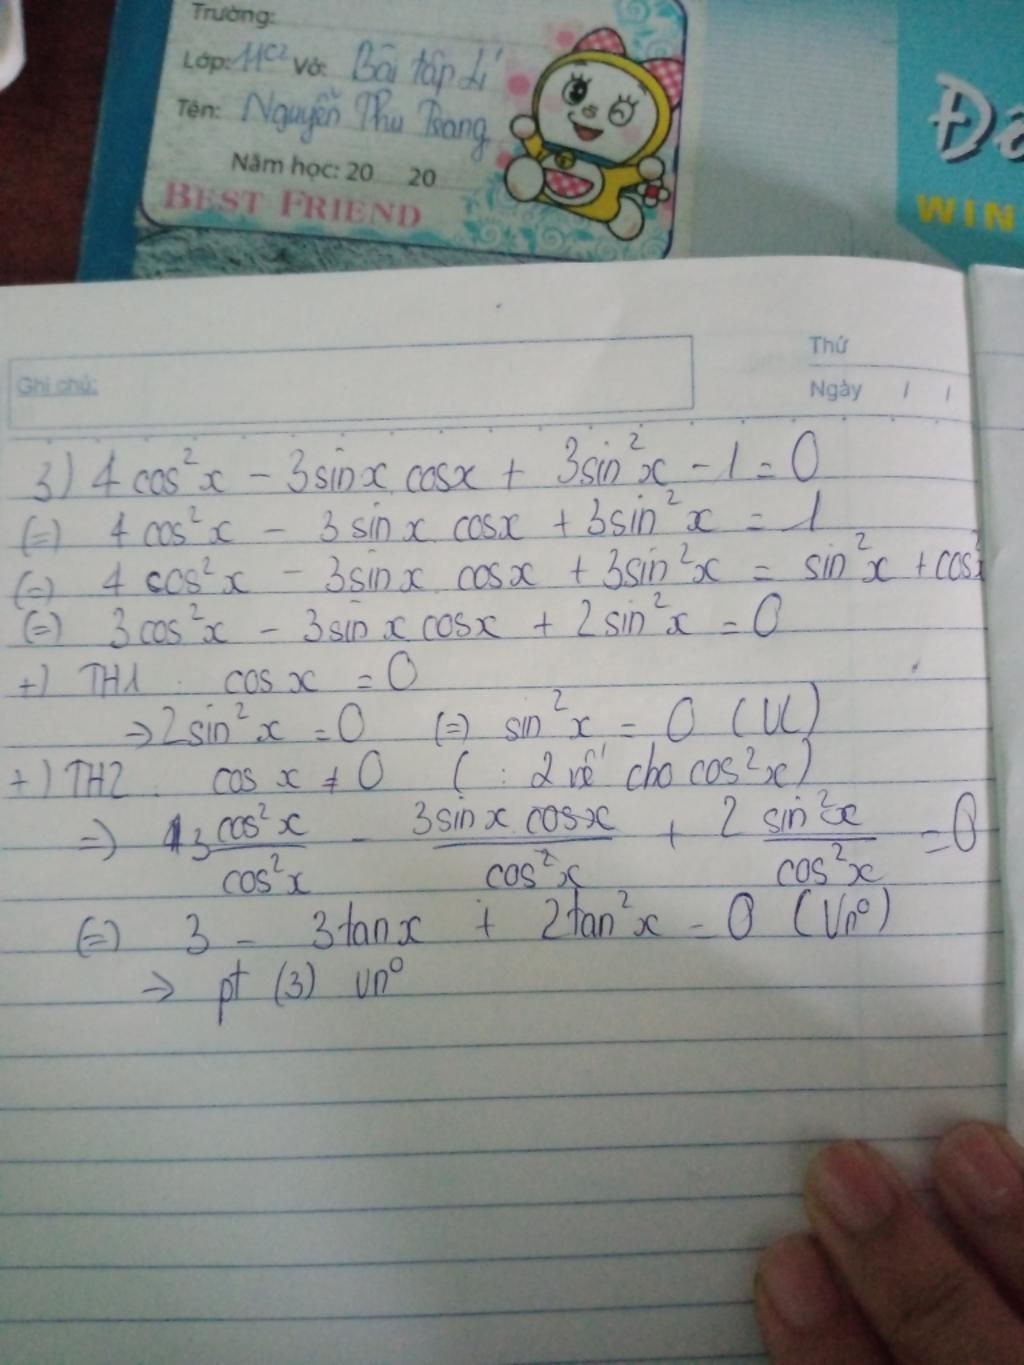 Trường:
Lớp: 11C2 Vở: Bài tập Lí
Tên: Nguyễn Thu Trang
Năm học: 20 20
BEST FRIEND
WIN
Thứ
Ghi chú:
Ngày / /
3) 4 cos²x - 3sinx cosx + 3sin²x - 1 = 0
(=) 4 cos²x - 3 sin x cosx + 3sin²x = 1
(=) 4 cos²x - 3sin x cosx + 3sin²x = sin²x + cos²x
(=) 3cos²x - 3sin x cosx + 2sin²x = 0
+) TH1 : cos x = 0
⇒ 2sin²x = 0 (=) sin²x = 0 (VL)
+) TH2 : cos x ≠ 0 ( : 2 vế cho cos²x)
⇒ 3 cos²x/cos²x - 3sin x cosx/cos²x + 2 sin²x/cos²x = 0
(=) 3 - 3tanx + 2tan²x = 0 (Vn⁰)
→ pt (3) vn⁰